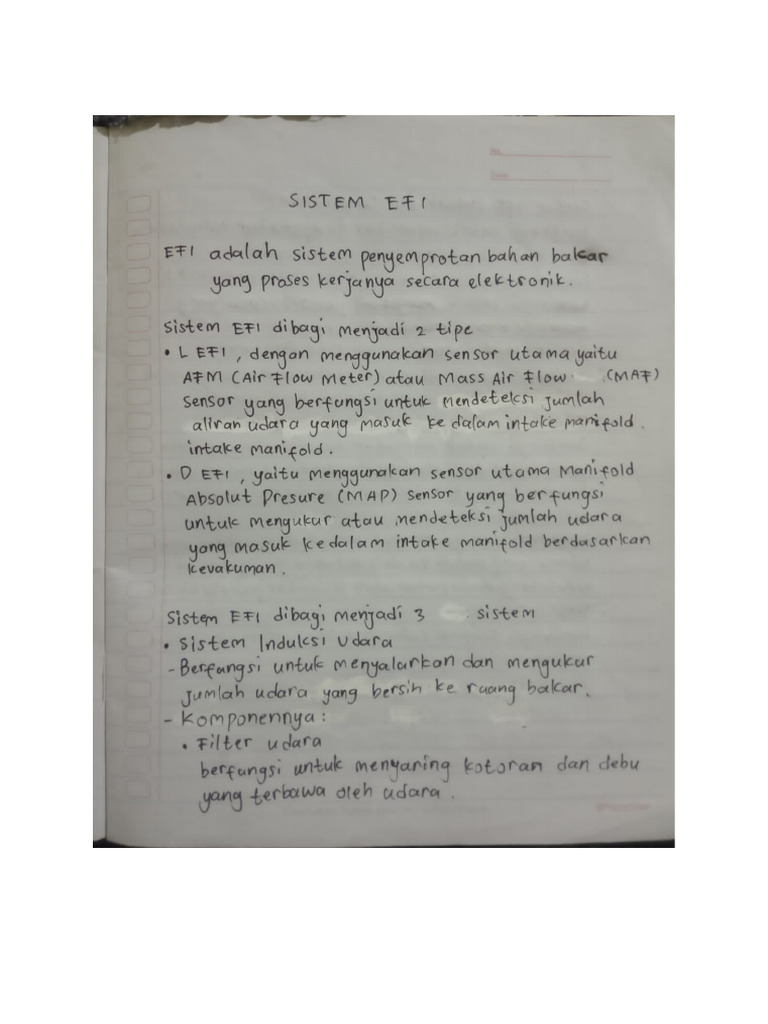 No.
Date
SISTEM EFI
EFI adalah sistem penyemprotan bahan bakar
yang proses kerjanya secara elektronik.
Sistem EFI dibagi menjadi 2 tipe
• L EFI, dengan menggunakan sensor utama yaitu
AFM (Air Flow Meter) atau Mass Air Flow (MAF)
sensor yang berfungsi untuk mendeteksi jumlah
aliran udara yang masuk ke dalam intake manifold.
intake manifold.
• D EFI, yaitu menggunakan sensor utama Manifold
Absolut Presure (MAP) sensor yang berfungsi
untuk mengukur atau mendeteksi jumlah udara
yang masuk kedalam intake manifold berdasarkan
kevakuman.
Sistem EFI dibagi menjadi 3 sistem
• Sistem Induksi Udara
- Berfungsi untuk menyalurkan dan mengukur
jumlah udara yang bersih ke ruang bakar.
- Komponennya:
• Filter udara
berfungsi untuk menyaring kotoran dan debu
yang terbawa oleh udara.